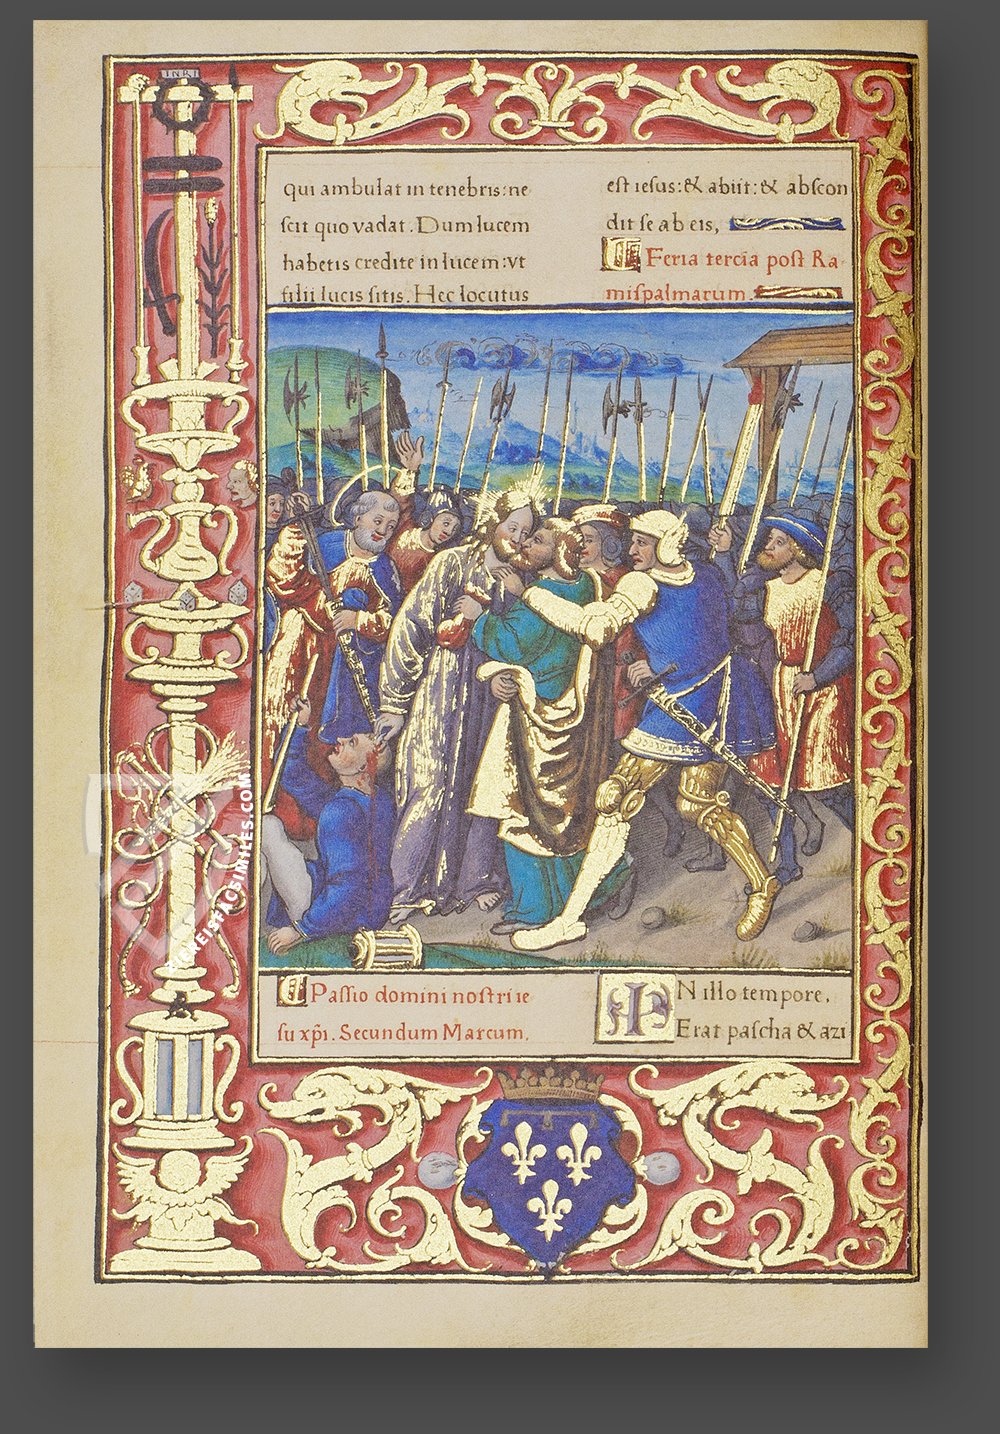 INRI
qui ambulat in tenebris: ne
scit quo vadat. Dum lucem
habetis credite in lucem: vt
filii lucis sitis. Hec locutus
est iesus: & abiit: & abscon
dit se ab eis,
Feria tercia post Ra
mispalmarum.
Passio domini nostri ie
su xp̃i. Secundum Marcum,
IN illo tempore,
Erat pascha & azi